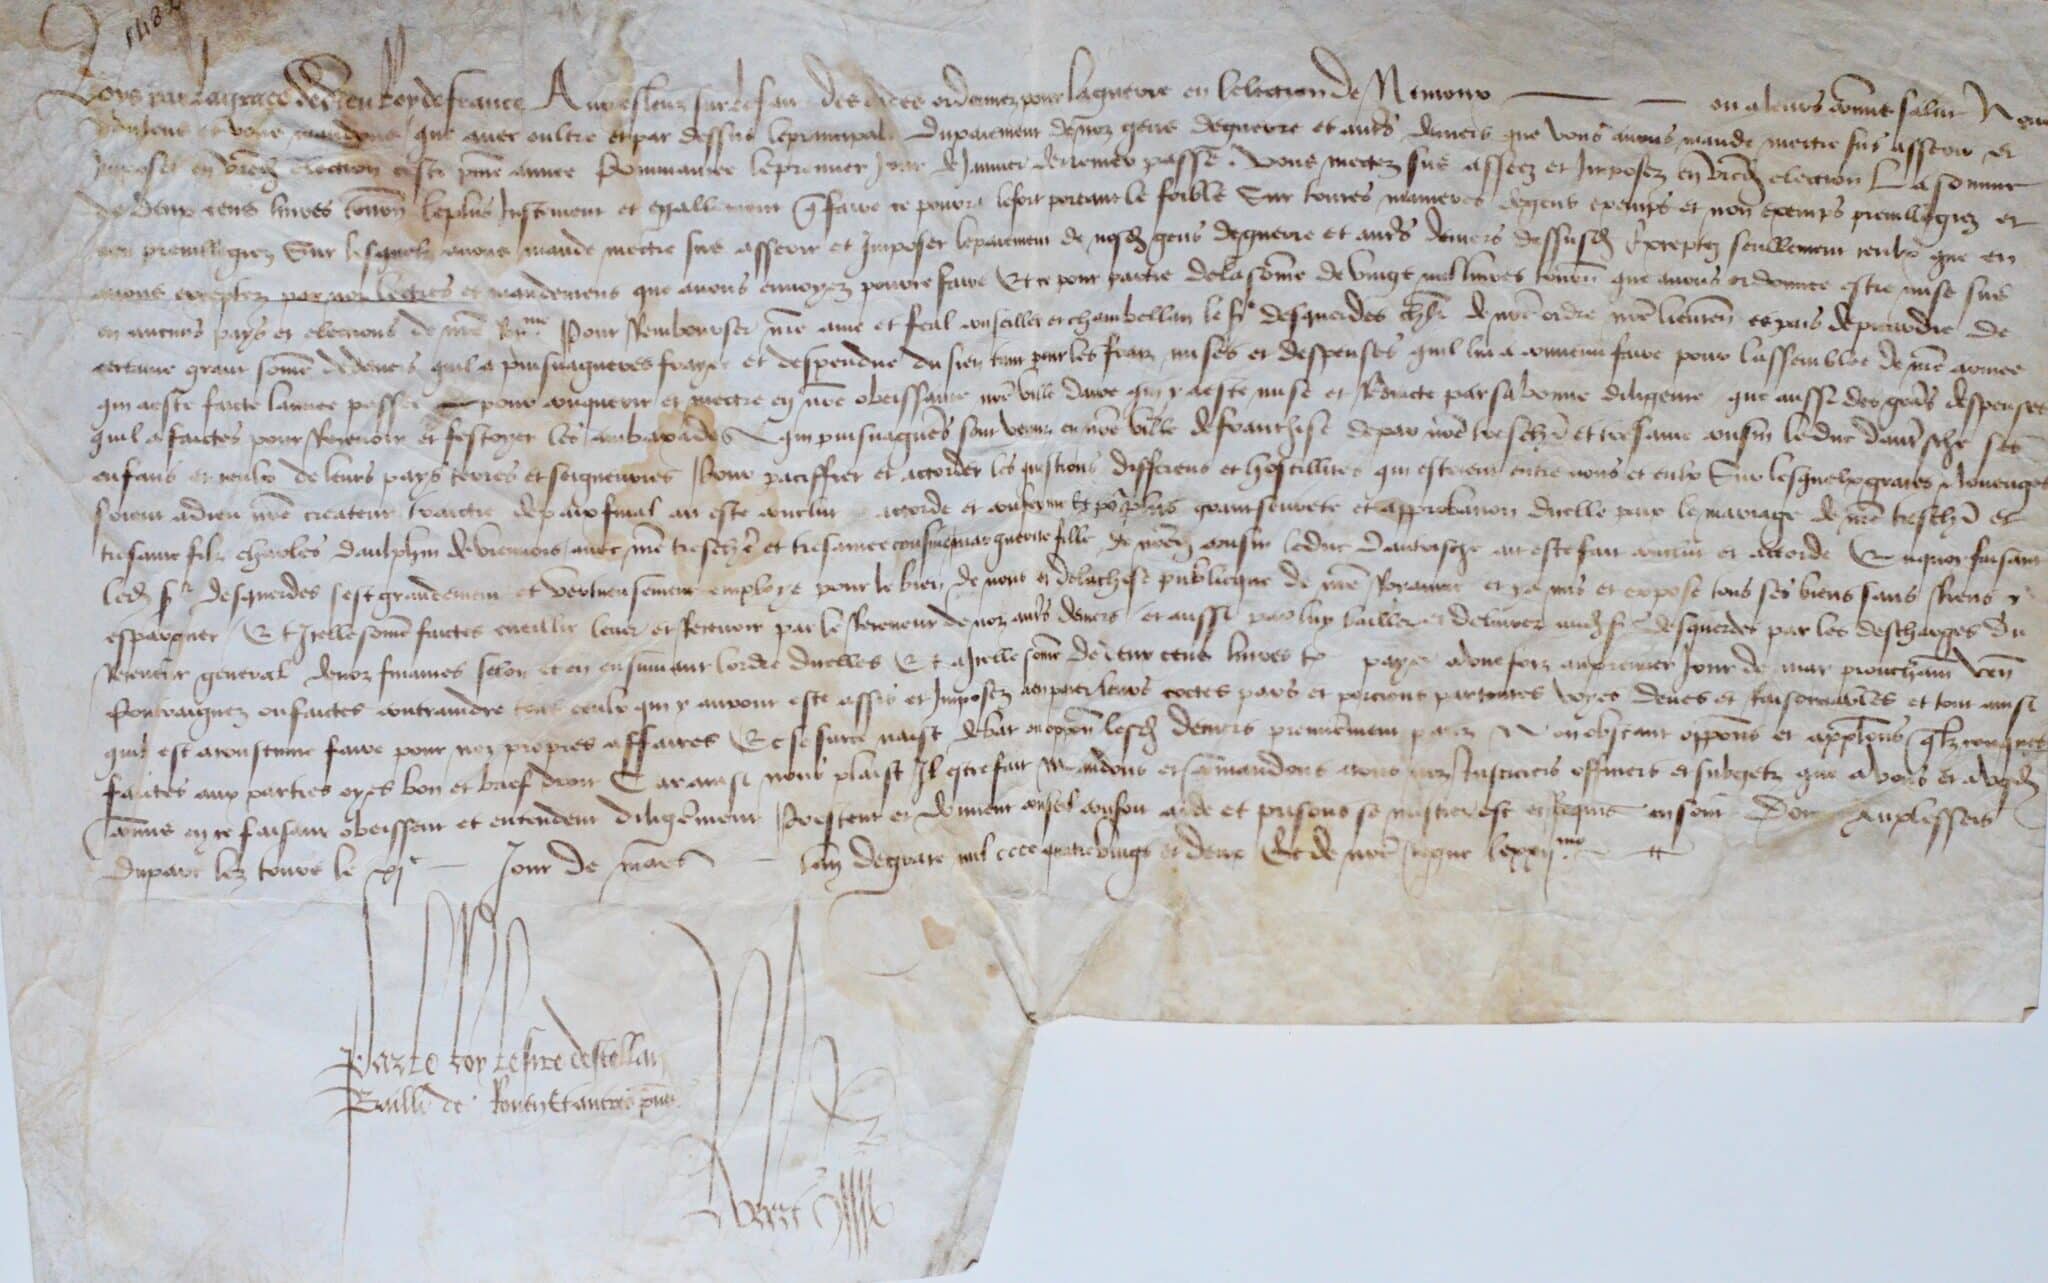 1482
Loys par la grace de dieu Roy de france Aux esleuz sur le fait des aides ordonnez pour la guerre en lelection de Nemoux ou a leurs commis salut Nous
voulons et vous mandons que avec oultre et par dessus le principal du paiement de noz gens de guerre et autres deniers que vous avons mande mectre sus asseoir et
imposer en election ceste annee commancee le premier jour de Janvier dernier passe vous mectez sus asseez et Imposez en election La somme
de deux cens livres le plus Justement et egallement que faire ce pourra le fort portant le foible Sur toutes manieres de gens exemps et non exemps previllegiez et
non previllegiez Sur lesquelz avons mande mectre sus asseoir et Imposer le paiement de gens de guerre et autres deniers Exceptez seullement ceulx que en
avons exceptez par noz lectres et mandemens que avons envoyez pour ce faire Et ce pour partie de la somme de vingt mil livres que avons ordonnee estre mise sus
en aucuns pays et elections de nre Pour Rembourser nre ame et feal conseiller et chambellan le sr desquerdes chlr de nre ordre nre lieuten es pais de picardie de
certaine grant some de deniers quil a puisnagueres fraye et despendue du sien tant pour les fraiz mises et despenses quil lui a convenu faire pour lassemblee de nre armee
qui a este faicte lannee passee pour conquerir et mectre en nre obeissance nre ville daire qui y a este mise et Reduicte par sa bonne diligence que aussi des despenses
quil a faictes pour Recevoir et festoyer les ambaxades qui puisnagueres sont venuz en nre ville de franchise de par nre treschr et tresame cousin le duc dautrische ses
enfans et ceulx de leurs pays terres et seigneuries Pour paciffier et accorder les questions differens et hostillitez qui estoient entre nous et eulx Sur lesquelx graces
soient a dieu nre createur traictie de paix final a este conclut accorde et conferme Et plus grant seurete et approbacion dicelle paix le mariage de nre treschr et
tresame filz charles daulphin de viennois avec nre treschre et tresamee cousine marguerite fille de cousin le duc dautrische a este fait conclu et accorde En quoy faisant
led sr desquerdes sest grandement et vertueusement employe pour le bien de nous et de la chose publicque de nre Royaume et y a mis et expose tous ses biens sans Riens y
espargner Et Icelle some faictes cueillir lever et Recevoir par le Receveur de noz autres deniers et aussi par luy bailler et delivrer aud sr desquerdes par les descharges du
Receveur general de noz finances selon et en ensuivant lordre dicelles Et a Icelle some de deux cens livres payer a deux foiz au premier Jour de mars prouchain ven
Contraignez ou faictes contraindre tous ceulx qui y auront este assis et Imposez a en paier leurs cotes pars et porcions par toutes voyes deues et Raisonnables et tout ainsi
quil est acoustume faire pour noz propres affaires Et se sur ce naist debat ou lesd deniers premierement paiez Nonobstant
faictes aux parties oyes bon et brief droit Car ainsi nous plaist Il estre fait Mandons et commandons a tous noz Justiciers officiers et subgetz que a vous et a vosd
commis en ce faisant obeissent et entendent diligemment Prestent et donnent conseil confort aide et prisons se mestier est et Requis en sont Donne Au plesseis
du parc lez tours le vie Jour de mars lan de grace mil cccc quatre vings et deux Et de nre regne le xxije
Par le roy le sire destellan
Bailli de Rouen Et autres pns